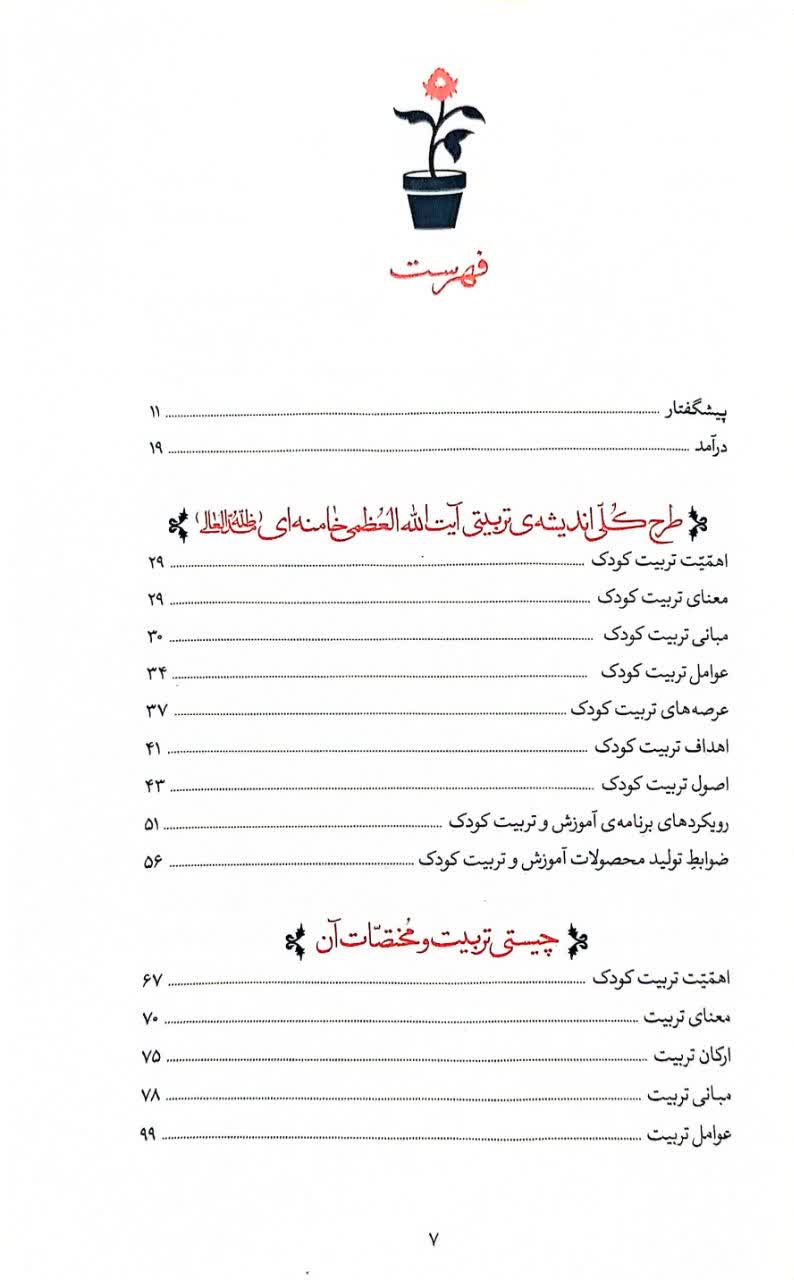 فهرست
پیشگفتار ........ ۱۱
درآمد ........ ۱۹
طرح کُلّی اندیشه‌ی تربیتی آیت الله العُظمی خامنه‌ای (مدّظلّه‌العالی)
اهمّیّت تربیت کودک ........ ۲۹
معنای تربیت کودک ........ ۲۹
مبانی تربیت کودک ........ ۳۰
عوامل تربیت کودک ........ ۳۴
عرصه‌های تربیت کودک ........ ۳۷
اهداف تربیت کودک ........ ۴۱
اصول تربیت کودک ........ ۴۳
رویکردهای برنامه‌ی آموزش و تربیت کودک ........ ۵۱
ضوابطِ تولید محصولات آموزش و تربیت کودک ........ ۵۶
چیستی تربیت و مُختصّات آن
اهمّیّت تربیت کودک ........ ۶۷
معنای تربیت ........ ۷۰
ارکان تربیت ........ ۷۵
مبانی تربیت ........ ۷۸
عوامل تربیت ........ ۹۹
۷